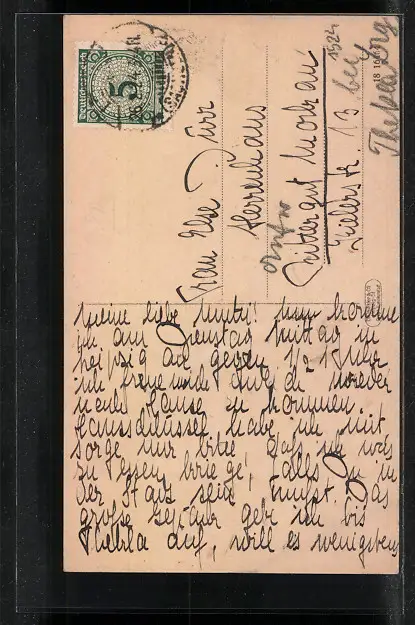 Deutsches Reich
5
1924
18 15
Frau Else Dürr
Herrenhaus
Rittergut Mockau
13 bei
Thekla
Meine liebe Mutti! Nun komme
ich am Dienstag Mittag in
Leipzig an gegen 1/2 1 Uhr
ich freue mich auch da wieder
nach Hause zu kommen.
Hausschlüssel habe ich mit.
Sorge nur bitte daß ich was
zu essen kriege, falls Du in
der Stadt sein mußt. Das
große Gepäck gebe ich bis
Thekla auf, will es wenigstens